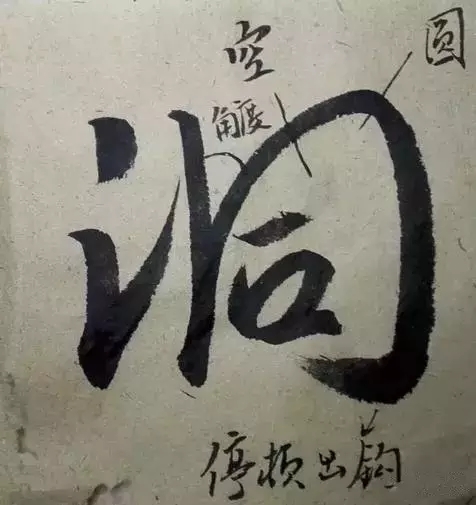 圆
空
角度
洞
停顿出鈎